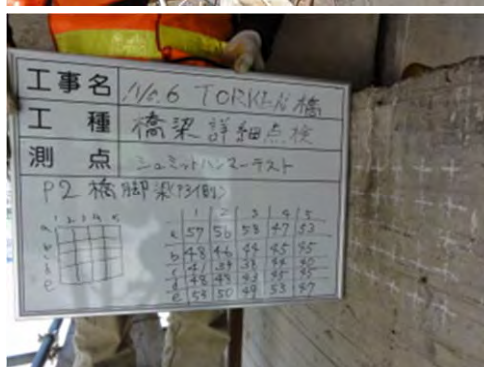 工事名 No.6 TORKEN 橋
工種 橋梁詳細点検
測点 シュミットハンマーテスト
P2橋脚梁(P3側)
1 2 3 4 5
a
b
c
d
e
1 2 3 4 5
a 57 56 53 47 53
b 48 46 44 45 45
c 41 39 38 44 40
d 48 48 43 45 45
e 53 50 49 53 47